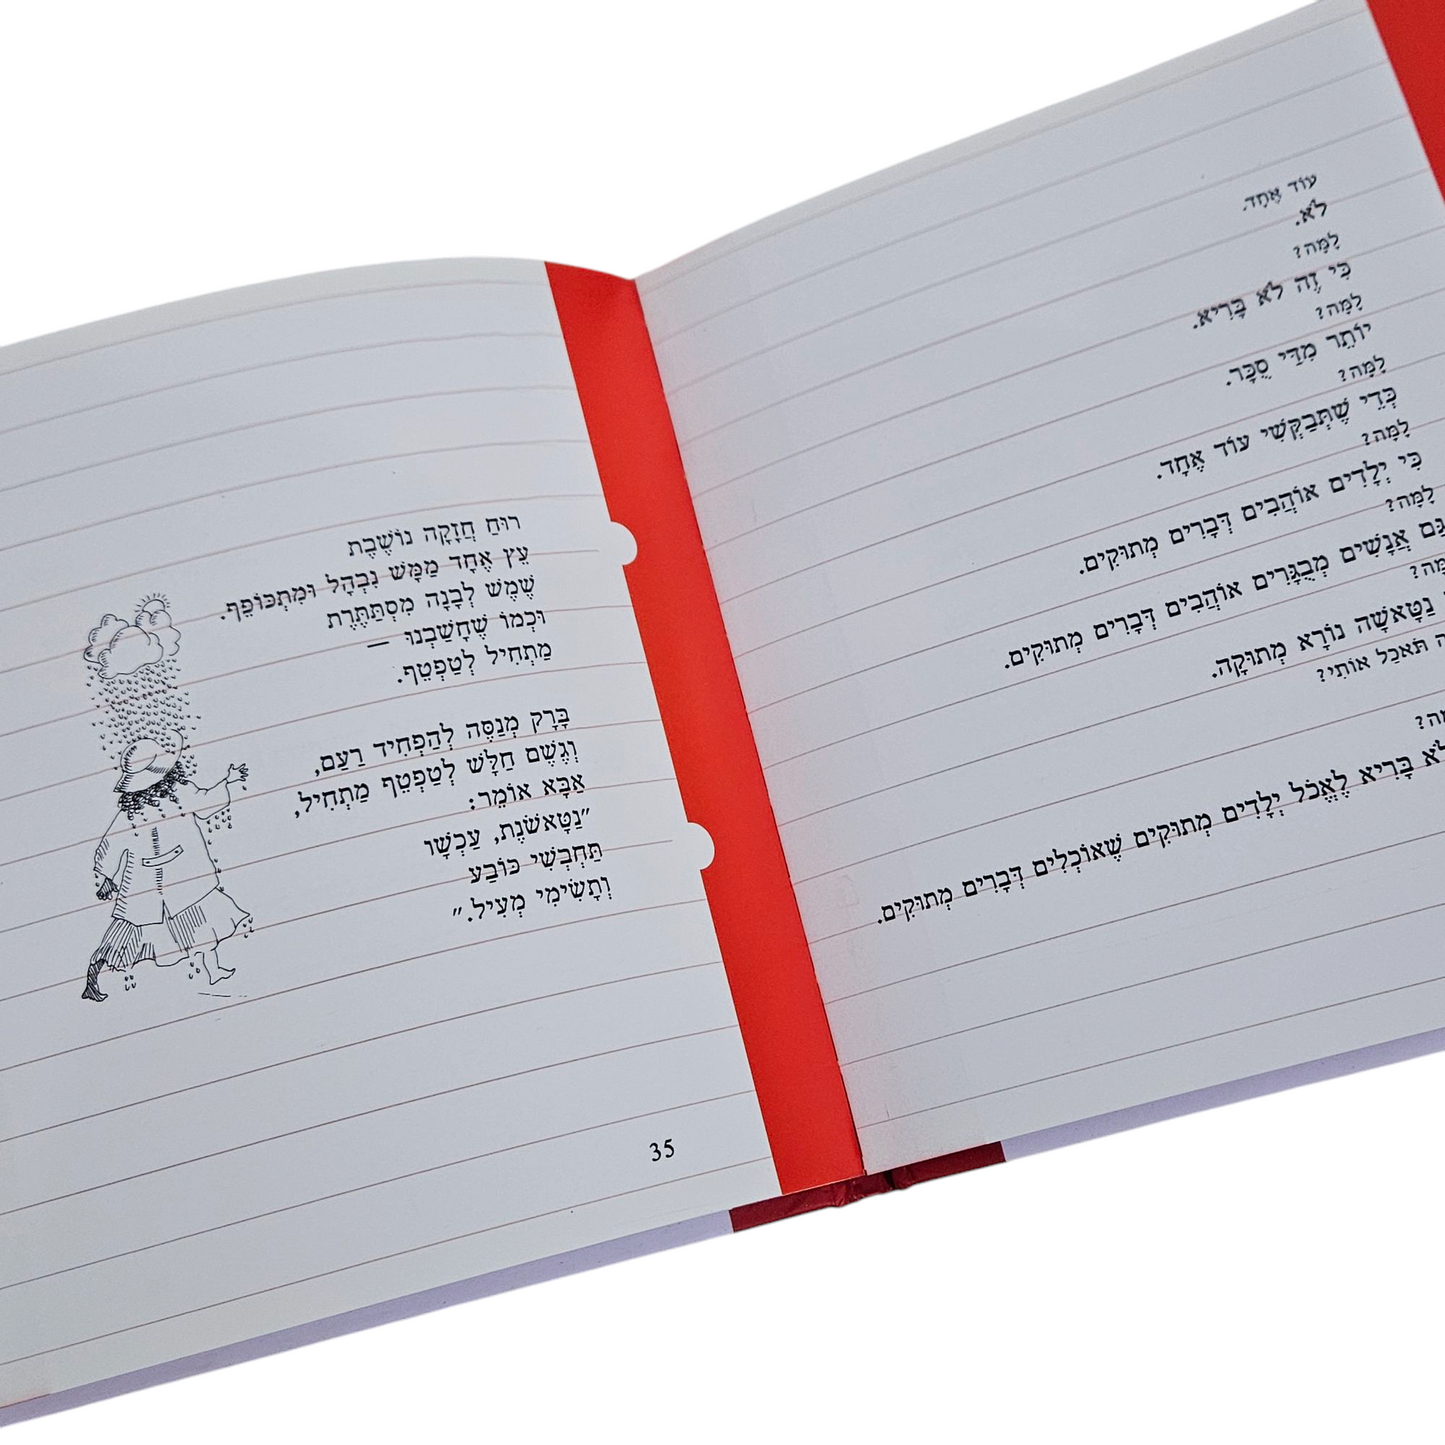 עוֹד אֶחָד.
לֹא.
לָמָּה?
כִּי זֶה לֹא בָּרִיא.
לָמָּה?
יוֹתֵר מִדַּי סֻכָּר.
לָמָּה?
כְּדֵי שֶׁתְּבַקְּשִׁי עוֹד אֶחָד.
לָמָּה?
כִּי יְלָדִים אוֹהֲבִים דְּבָרִים מְתוּקִים.
לָמָּה?
גַּם אֲנָשִׁים מְבֻגָּרִים אוֹהֲבִים דְּבָרִים מְתוּקִים.
נַטָּאשָׁה נוֹרָא מְתוּקָה.
תֹּאכַל אוֹתִי?
לֹא בָּרִיא לֶאֱכֹל יְלָדִים מְתוּקִים שֶׁאוֹכְלִים דְּבָרִים מְתוּקִים.
רוּחַ חֲזָקָה נוֹשֶׁבֶת
עֵץ אֶחָד מַמָּשׁ נִבְהָל וּמִתְכּוֹפֵף.
שֶׁמֶשׁ לְבָנָה מִסְתַּתֶּרֶת
וּכְמוֹ שֶׁחָשַׁבְנוּ —
מַתְחִיל לְטַפְטֵף.
בָּרָק מְנַסֶּה לְהַפְחִיד רַעַם,
וְגֶשֶׁם חַלָּשׁ לְטַפְטֵף מַתְחִיל,
אַבָּא אוֹמֵר:
"נַטָּאשֹׁנֶת, עַכְשָׁו
תַּחְבְּשִׁי כּוֹבַע
וְתָשִׂימִי מְעִיל."
35